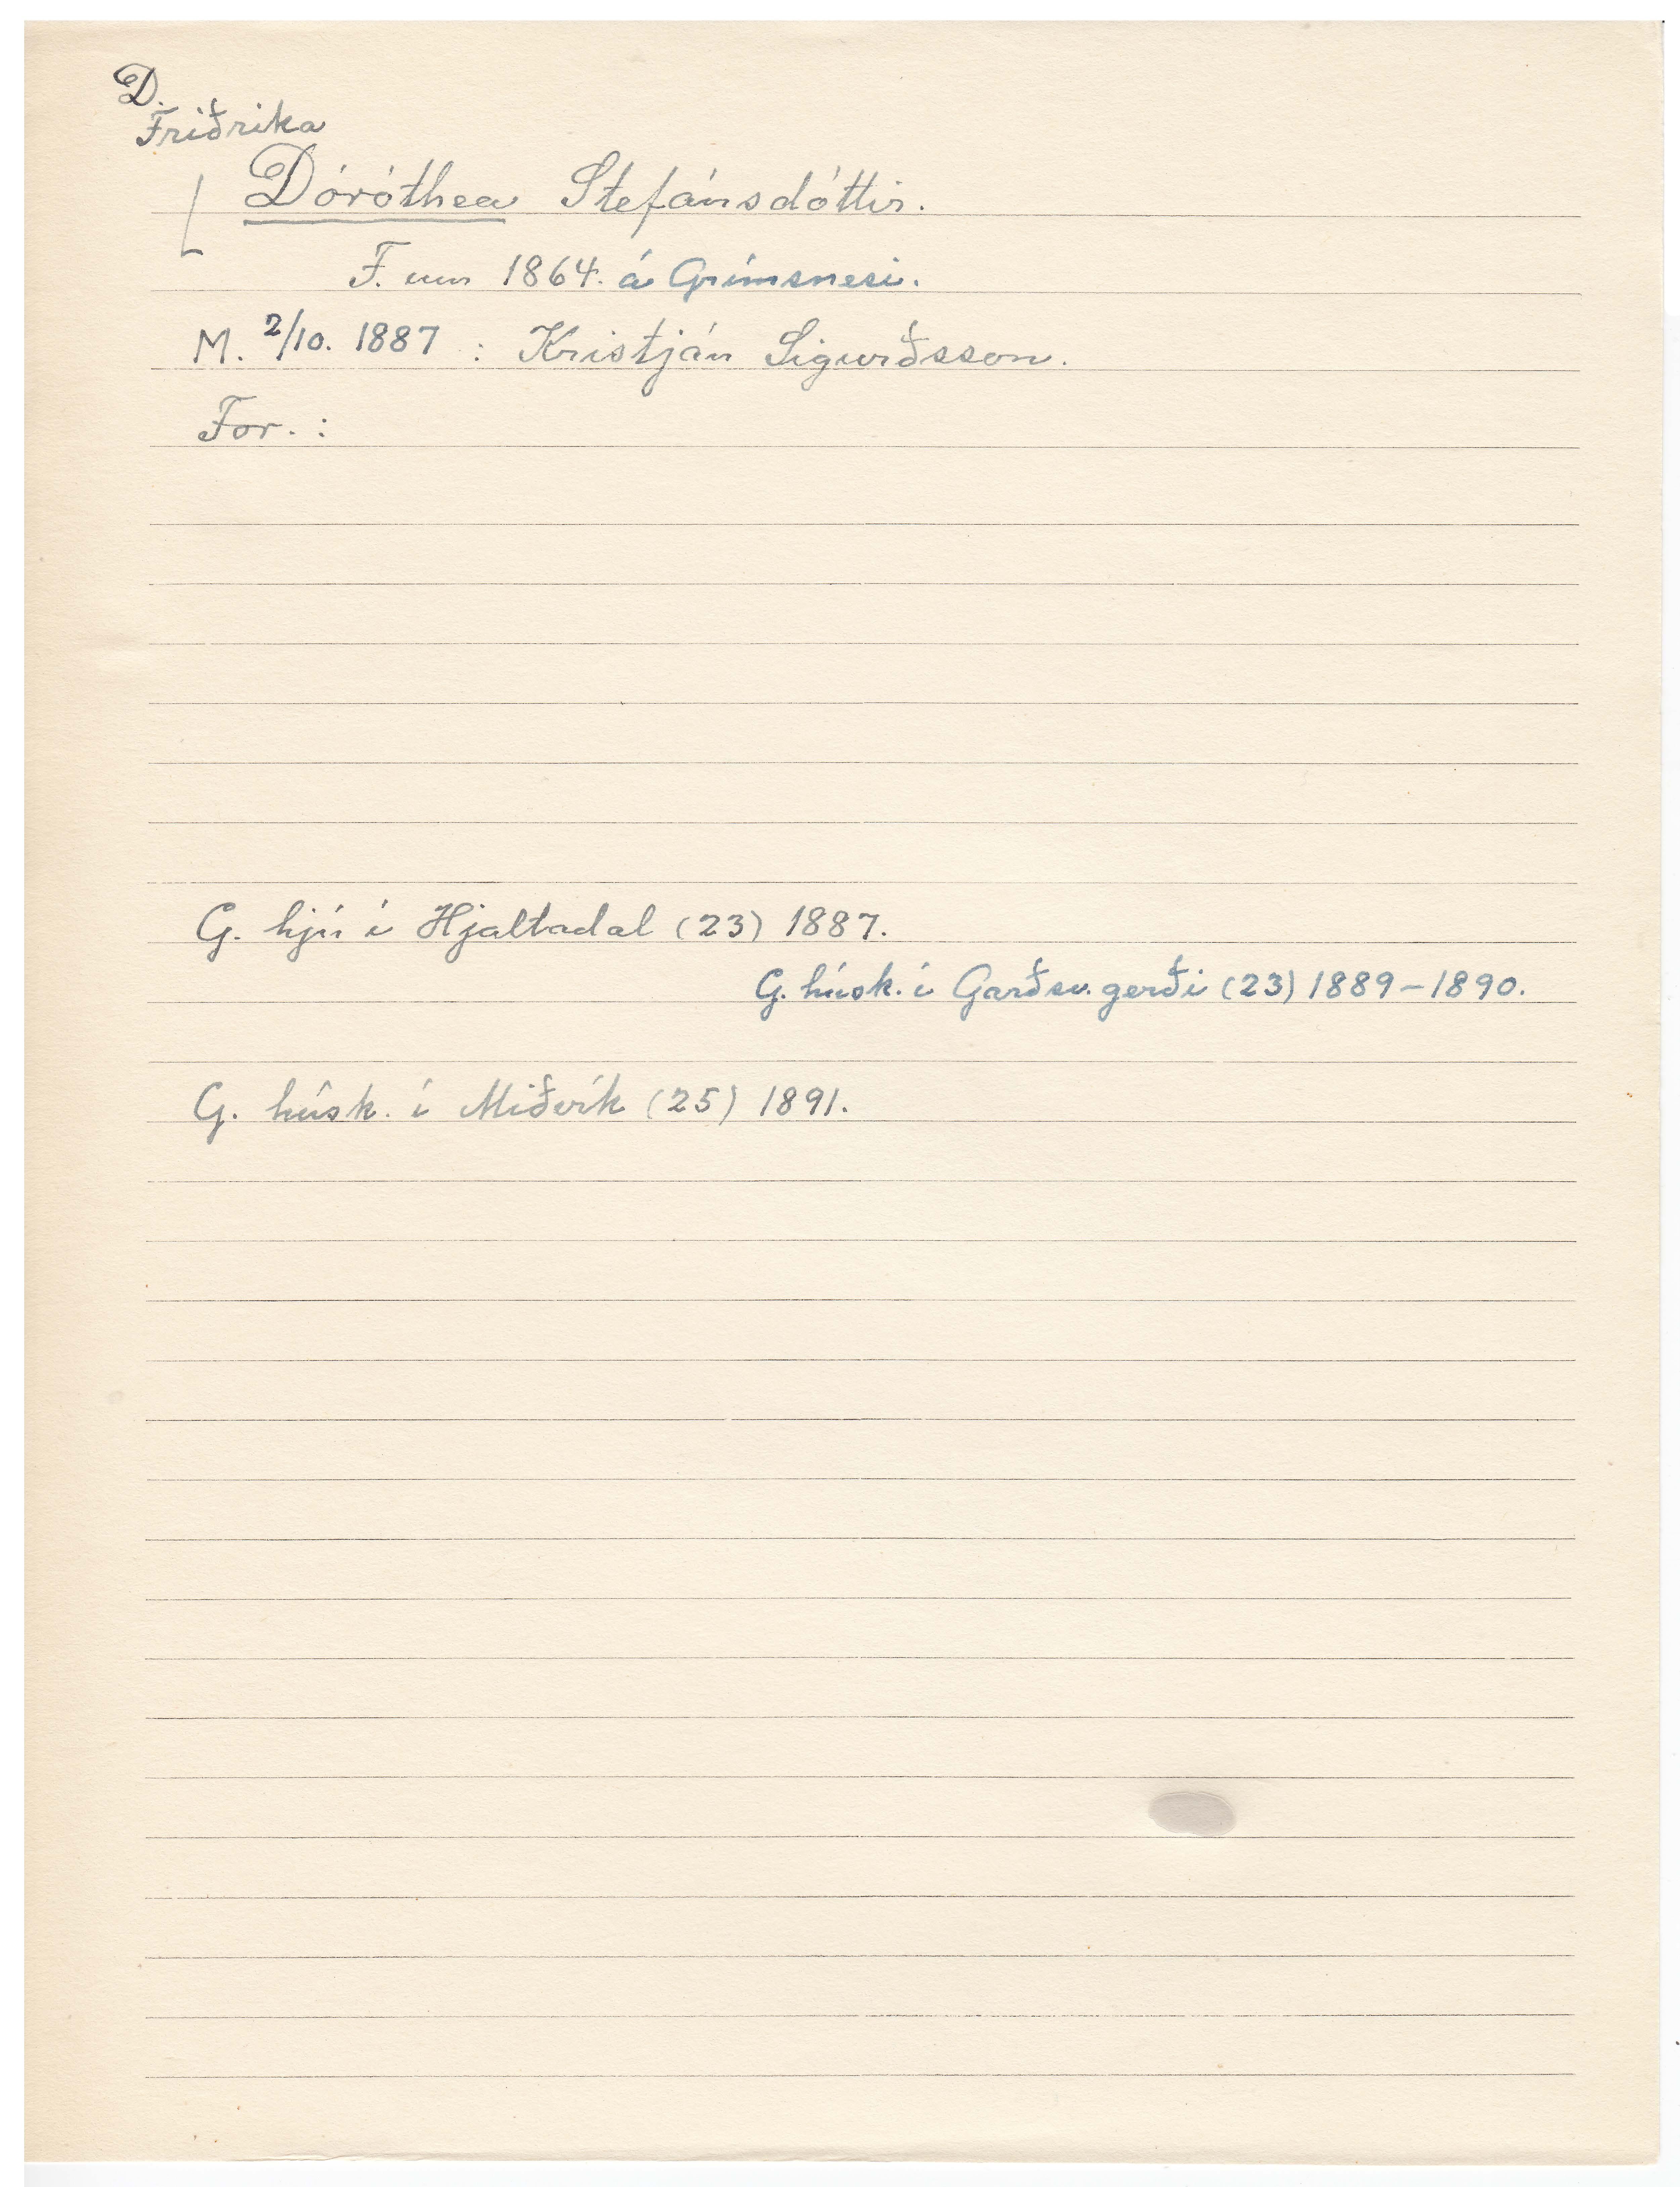 D.
Friðrika
Dóróthea Stefánsdóttir.
F. um 1864. á Grímsnesi.
M. 2/10. 1887 : Kristján Sigurðsson.
For. :
G. hjú í Hjaltadal (23) 1887.
G. húsk. í Garðsv. gerði (23) 1889-1890.
G. húsk. í Miðvík (25) 1891.